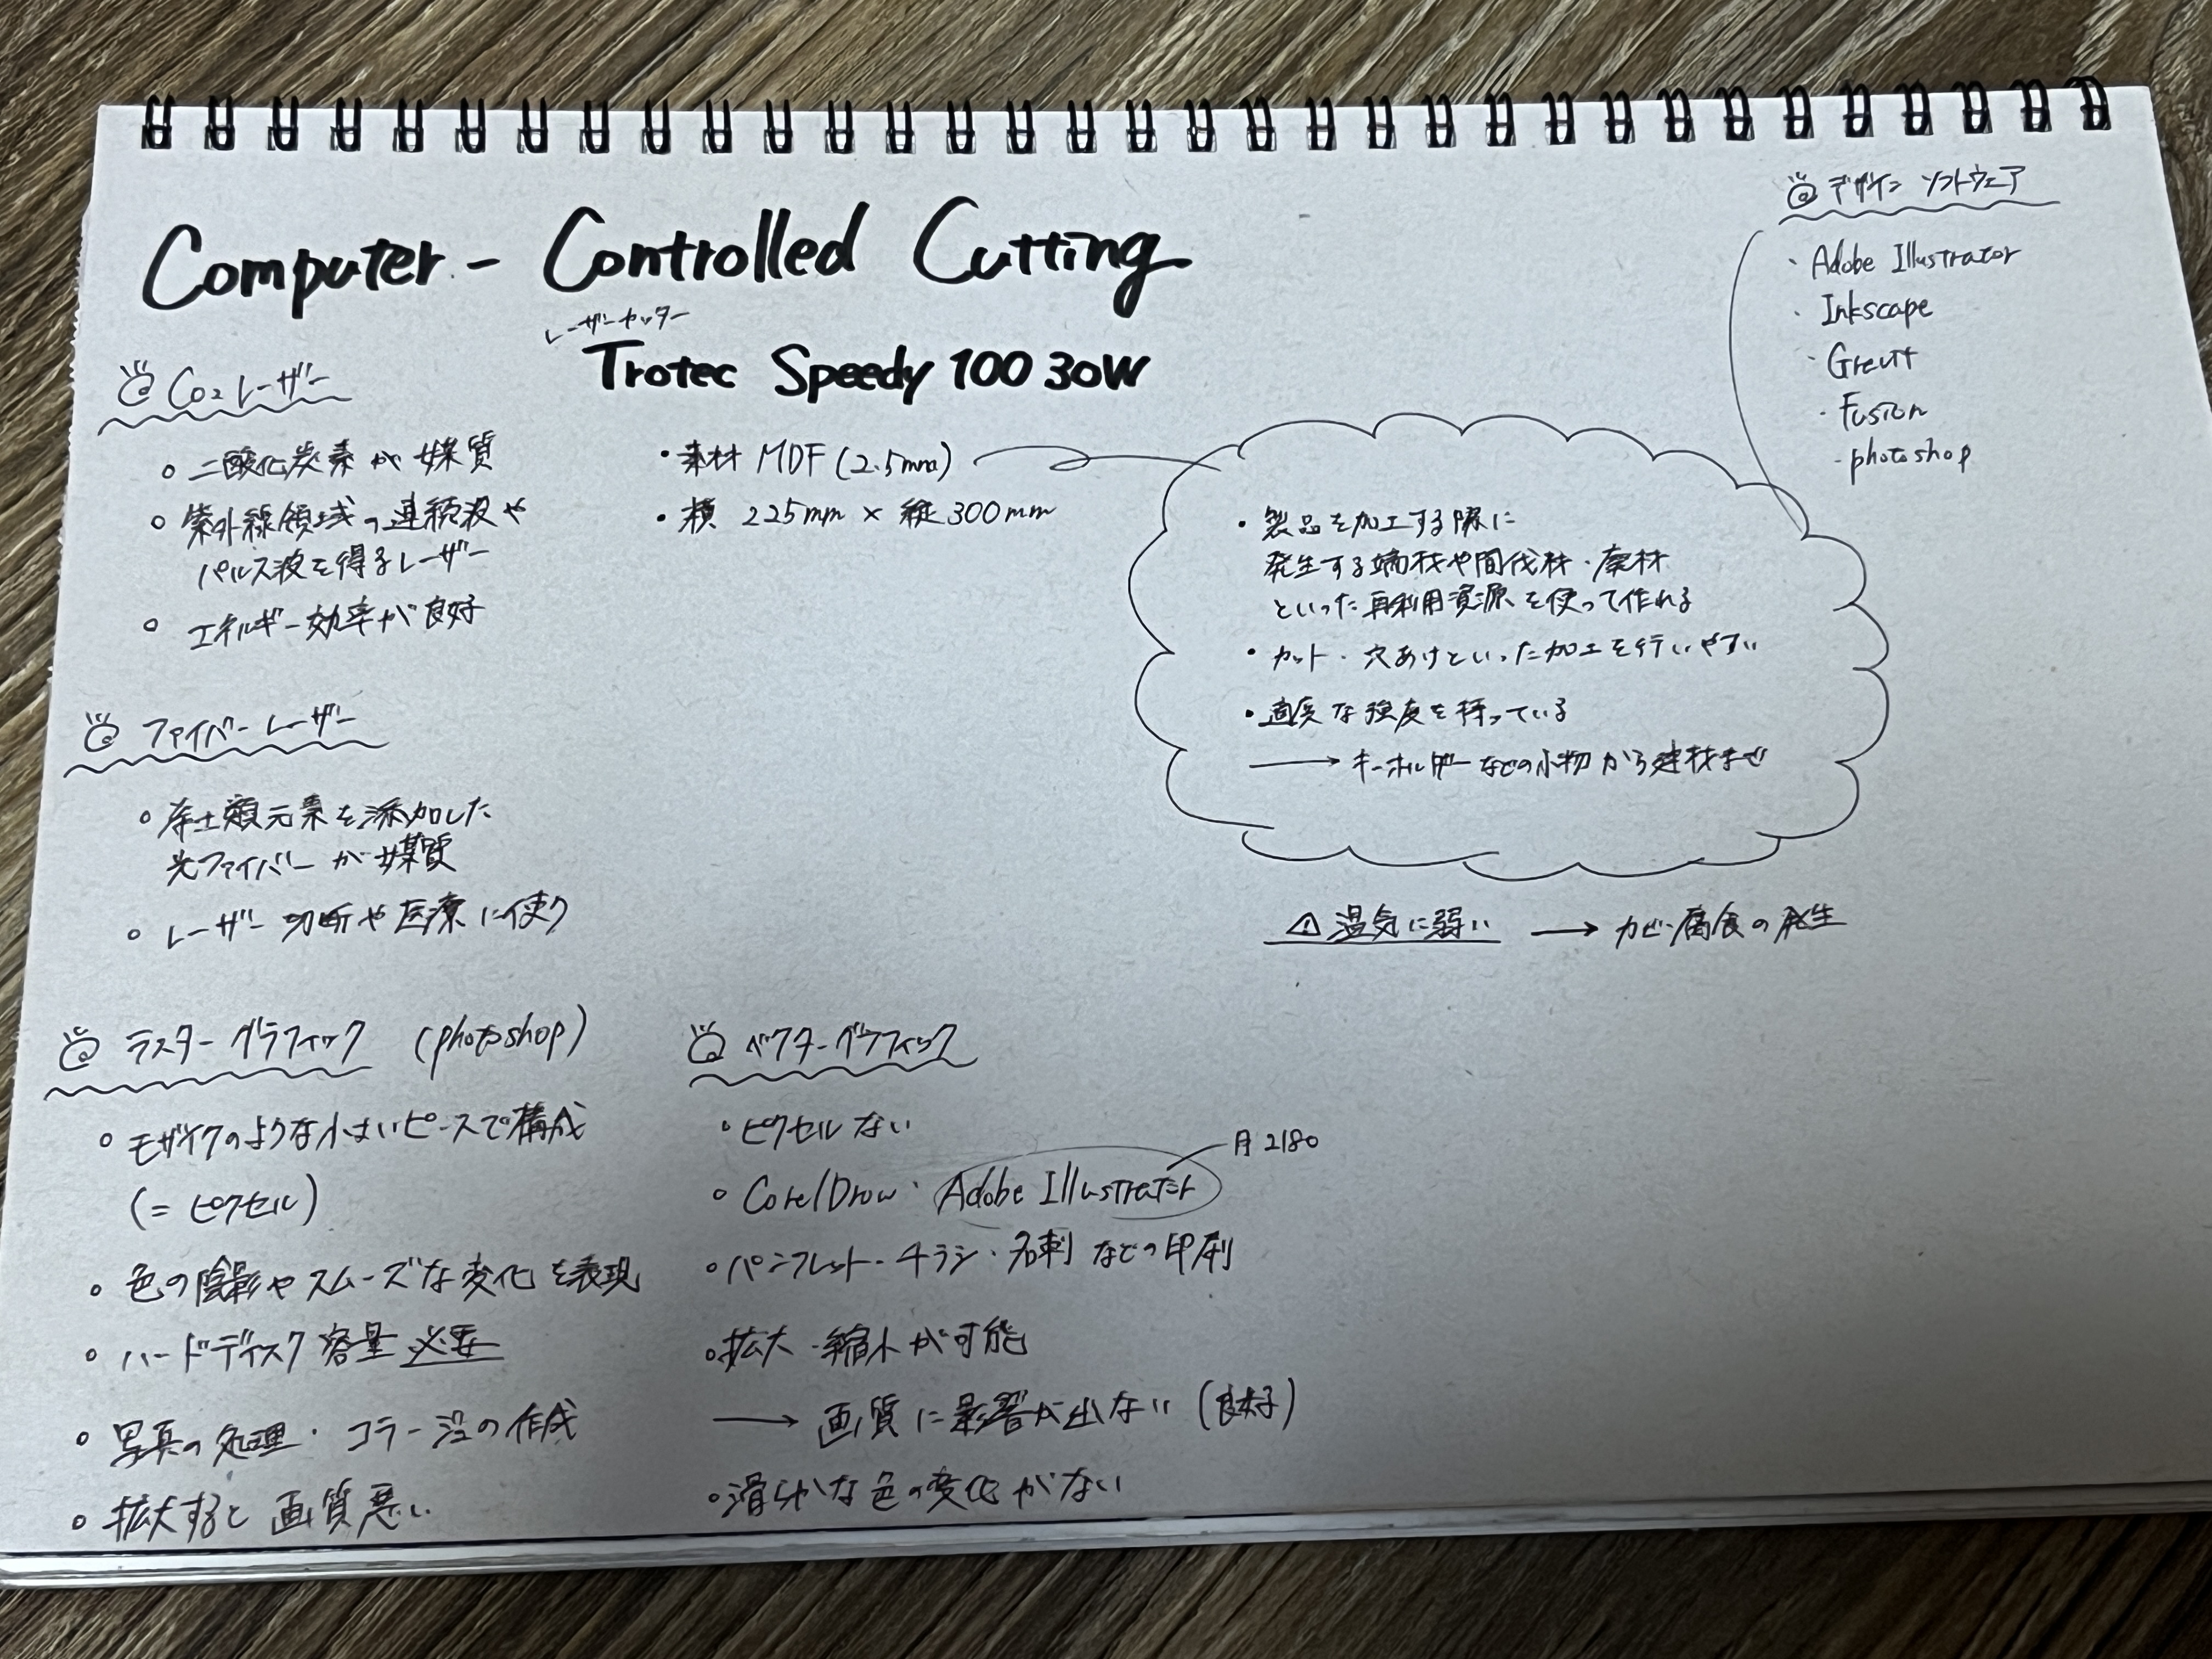 Computer - Controlled Cutting
レーザーカッター
Trotec Speedy 100 30W
CO₂ レーザー
。二酸化炭素が媒質
。紫外線領域の連続波や
パルス波を得るレーザー
。エネルギー効率が良好
・素材 MDF (2.5mm)
・横 225mm × 縦 300mm
・製品を加工する際に
発生する端材や間伐材・廃材
といった再利用資源を使って作れる
・カット・穴あけといった加工を行いやすい
・適度な強度を持っている
→ キーホルダーなどの小物から建材まで
⚠ 湿気に弱い → カビ・腐食の発生
デザイン ソフトウェア
・Adobe Illustrator
・Inkscape
・Fusion
- photoshop
ファイバーレーザー
。希土類元素を添加した
光ファイバーが媒質
。レーザー切断や医療に使う
ラスターグラフィック (photoshop)
。モザイクのような小さいピースで構成
(= ピクセル)
。色の陰影やスムーズな変化を表現
。ハードディスク容量必要
。写真の処理・コラージュの作成
。拡大すると画質悪い
ベクターグラフィック
。ピクセルない
。CorelDrow・Adobe Illustrator
月2180
。パンフレット・チラシ・名刺などの印刷
。拡大・縮小が可能
→ 画質に影響が出ない (良好)
。滑らかな色の変化がない